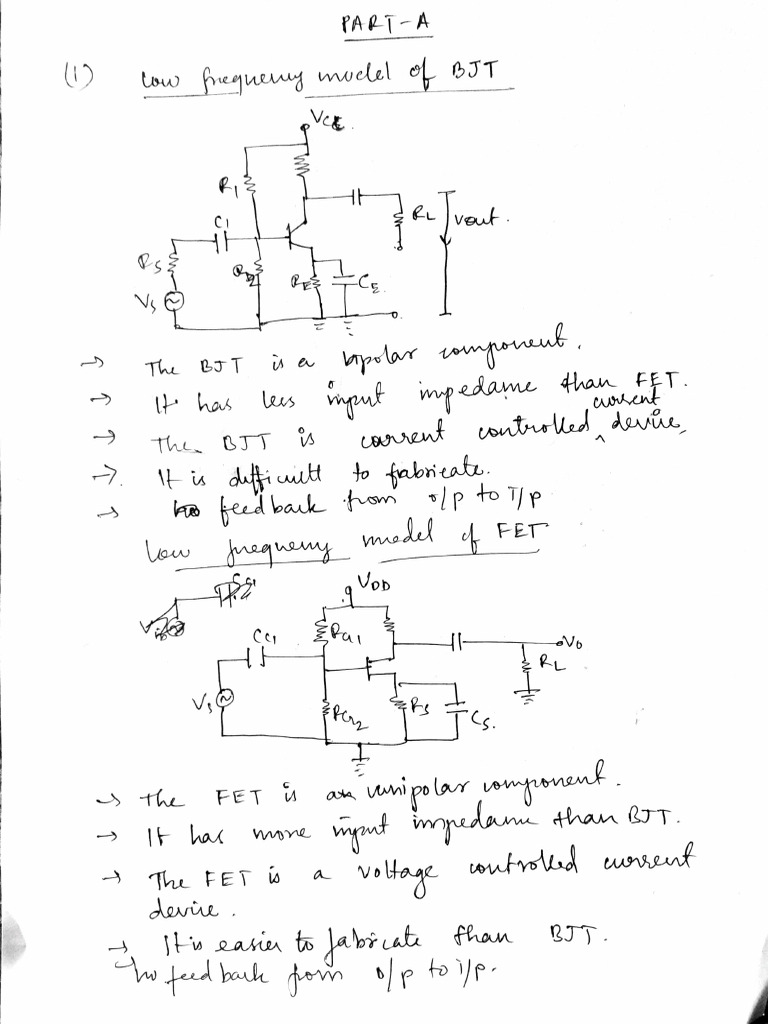 PART-A
(1) Low frequency model of BJT
VCC
R1
C1
RL
Vout.
RS
R2
RE
CE
VS
→ The BJT is a bipolar component.
→ It has less input impedance than FET.
current
→ The BJT is current controlled ^ device,
→. It is difficult to fabricate.
→ feedback from o/p to I/p
Low frequency model of FET
VDD
CC1
RG1
VO
RL
VS
RG2
RS
CS.
→ The FET is unipolar component.
→ It has more input impedance than BJT.
→ The FET is a voltage controlled current
device.
→ It is easier to fabricate than BJT.
No feedback from o/p to i/p.